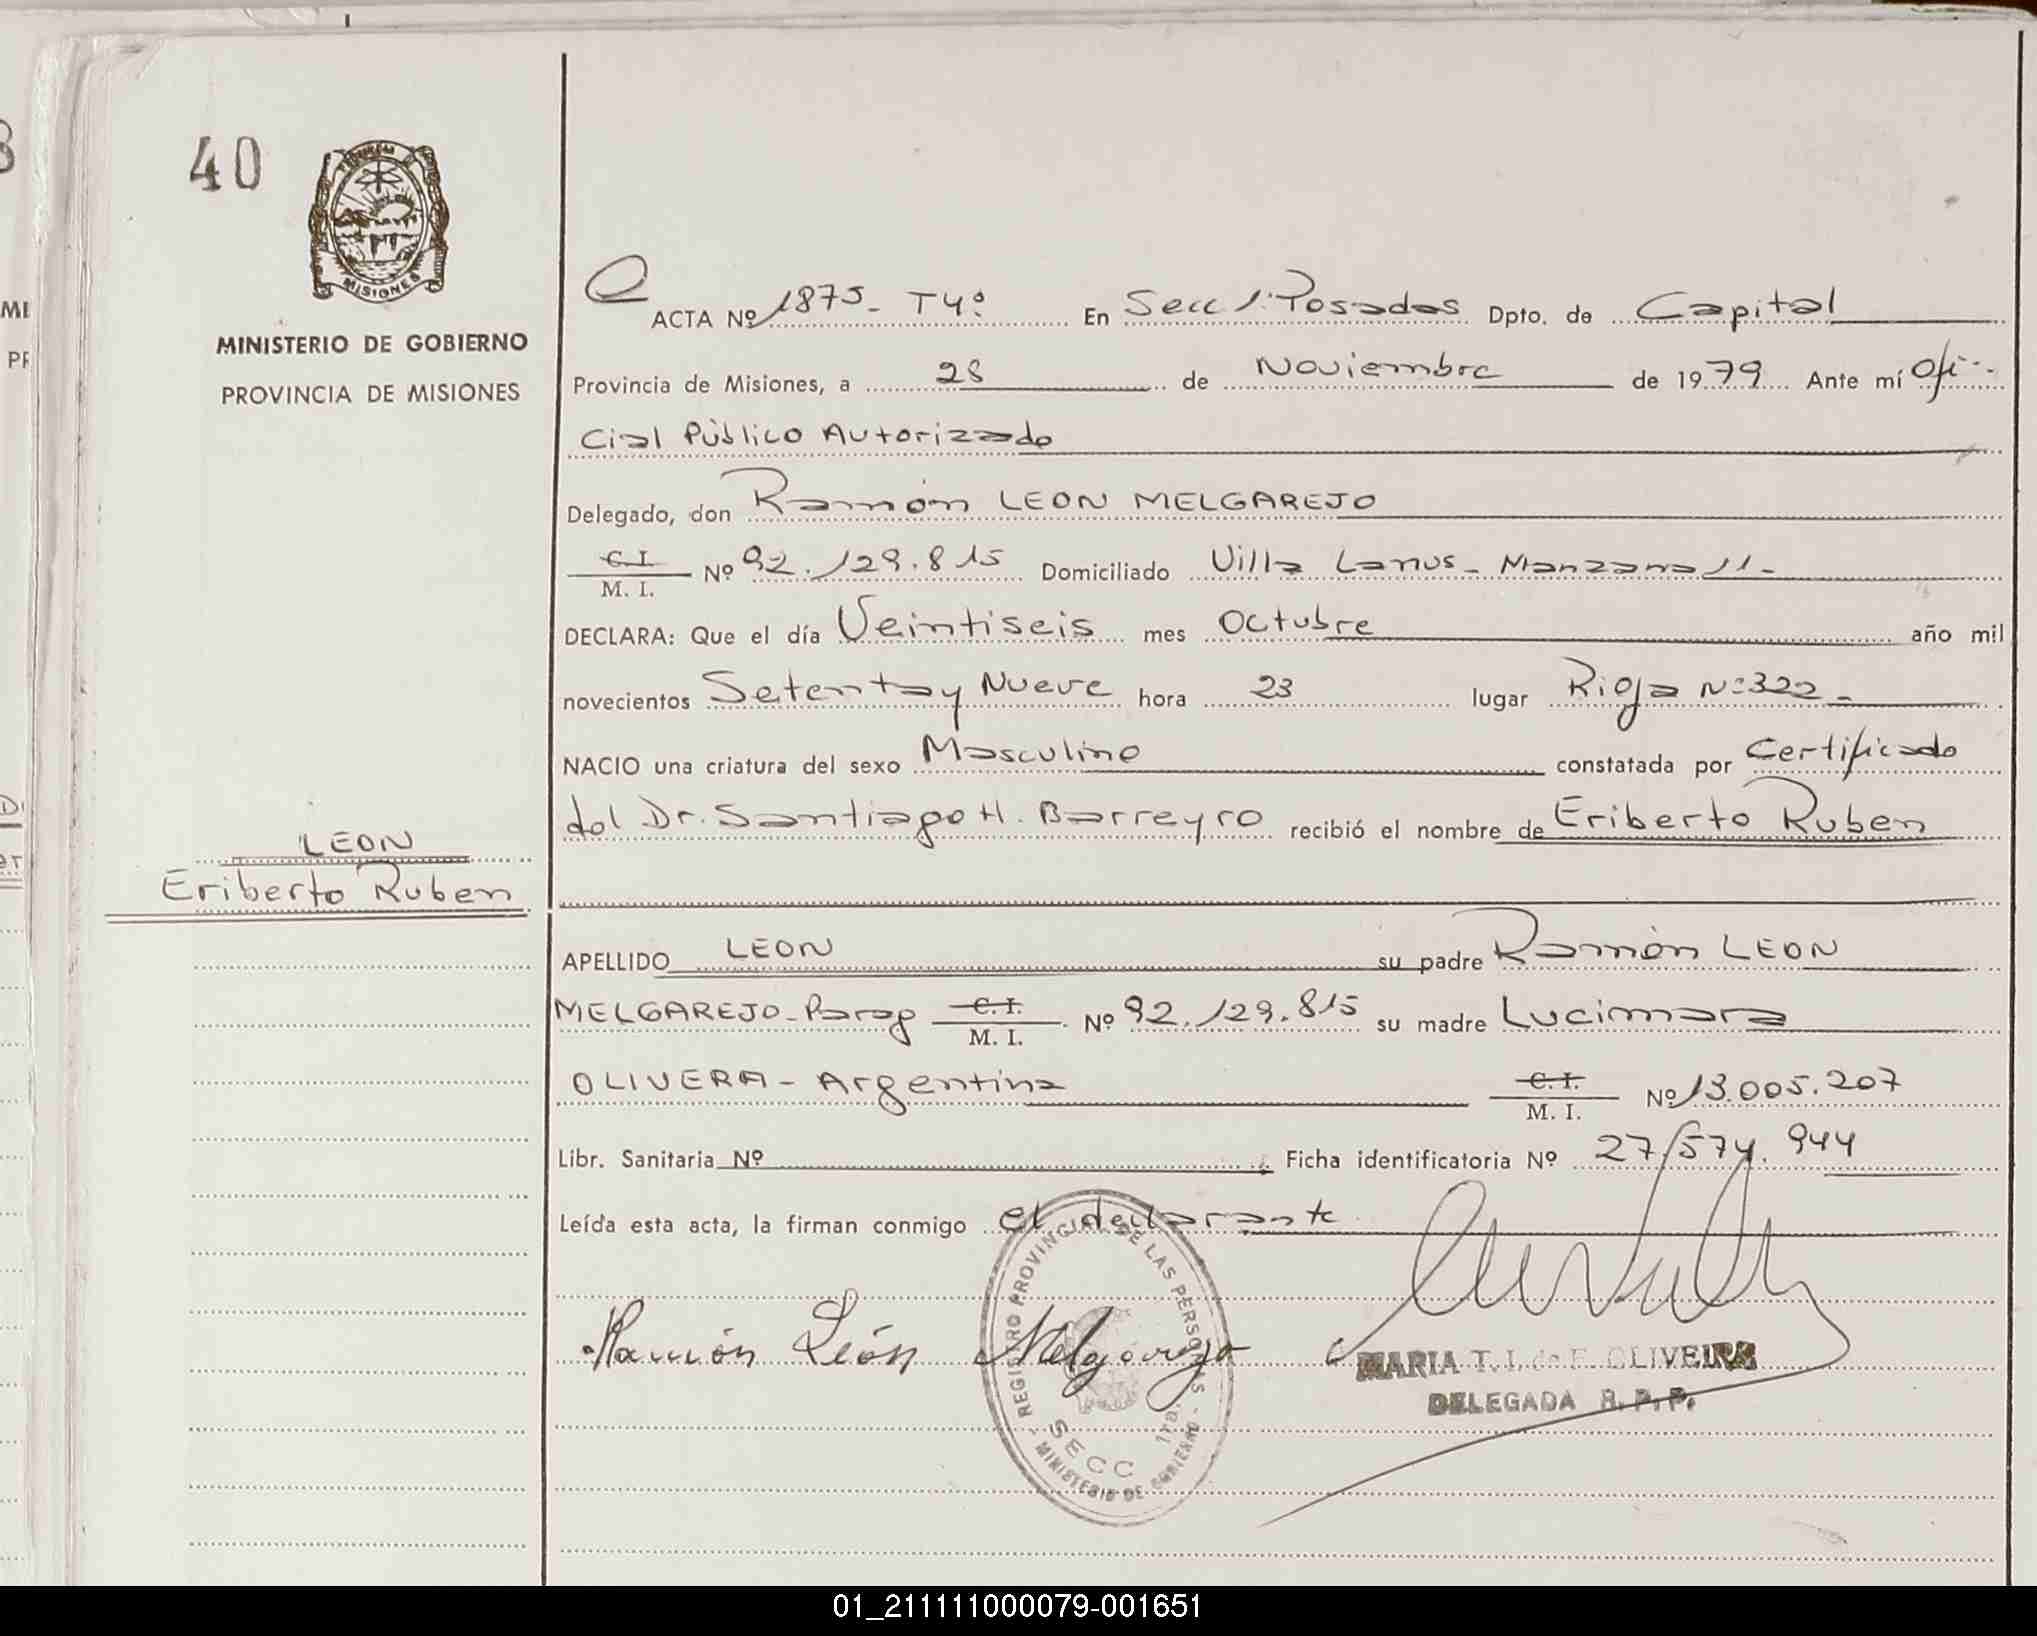 40
MISIONES
MINISTERIO DE GOBIERNO
PROVINCIA DE MISIONES
LEON
Eriberto Ruben
ACTA Nº 1875 - T4º En Secc 1º Posadas Dpto. de Capital
Provincia de Misiones, a 28 de Noviembre de 1979 Ante mí Ofi-
cial Público Autorizado
Delegado, don Ramón LEON MELGAREJO
C. I.
M. I. Nº 92.129.815 Domiciliado Villa Lanus - Manzana 11 -
DECLARA: Que el día Veintiseis mes Octubre año mil
novecientos Setenta y Nueve hora 23 lugar Rioja Nº 322 -
NACIO una criatura del sexo Masculino constatada por Certificado
del Dr. Santiago H. Barreyro recibió el nombre de Eriberto Ruben
APELLIDO LEON su padre Ramón LEON
MELGAREJO - Parag C. I. M. I. Nº 92.129.815 su madre Lucimara
OLIVERA - Argentina C. I. M. I. Nº 13.005.207
Libr. Sanitaria Nº Ficha identificatoria Nº 27.574.944
Leída esta acta, la firman conmigo el declarante
Ramón León Melgarejo
REGISTRO PROVINCIAL DE LAS PERSONAS
SECC 1ra.
MINISTERIO DE GOBIERNO
MARIA T. I. de F. OLIVEIRA
DELEGADA R. P. P.
01_211111000079-001651